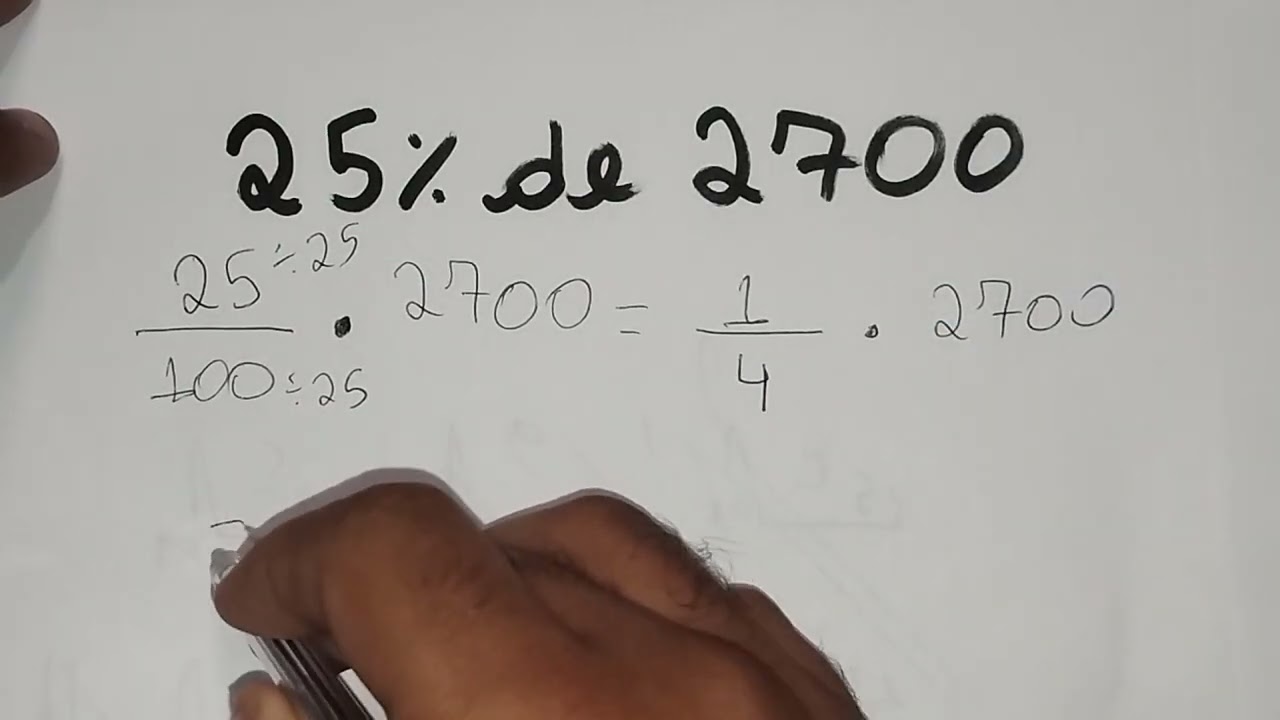 25% de 2700
25÷25 / 100÷25 . 2700 = 1/4 . 2700